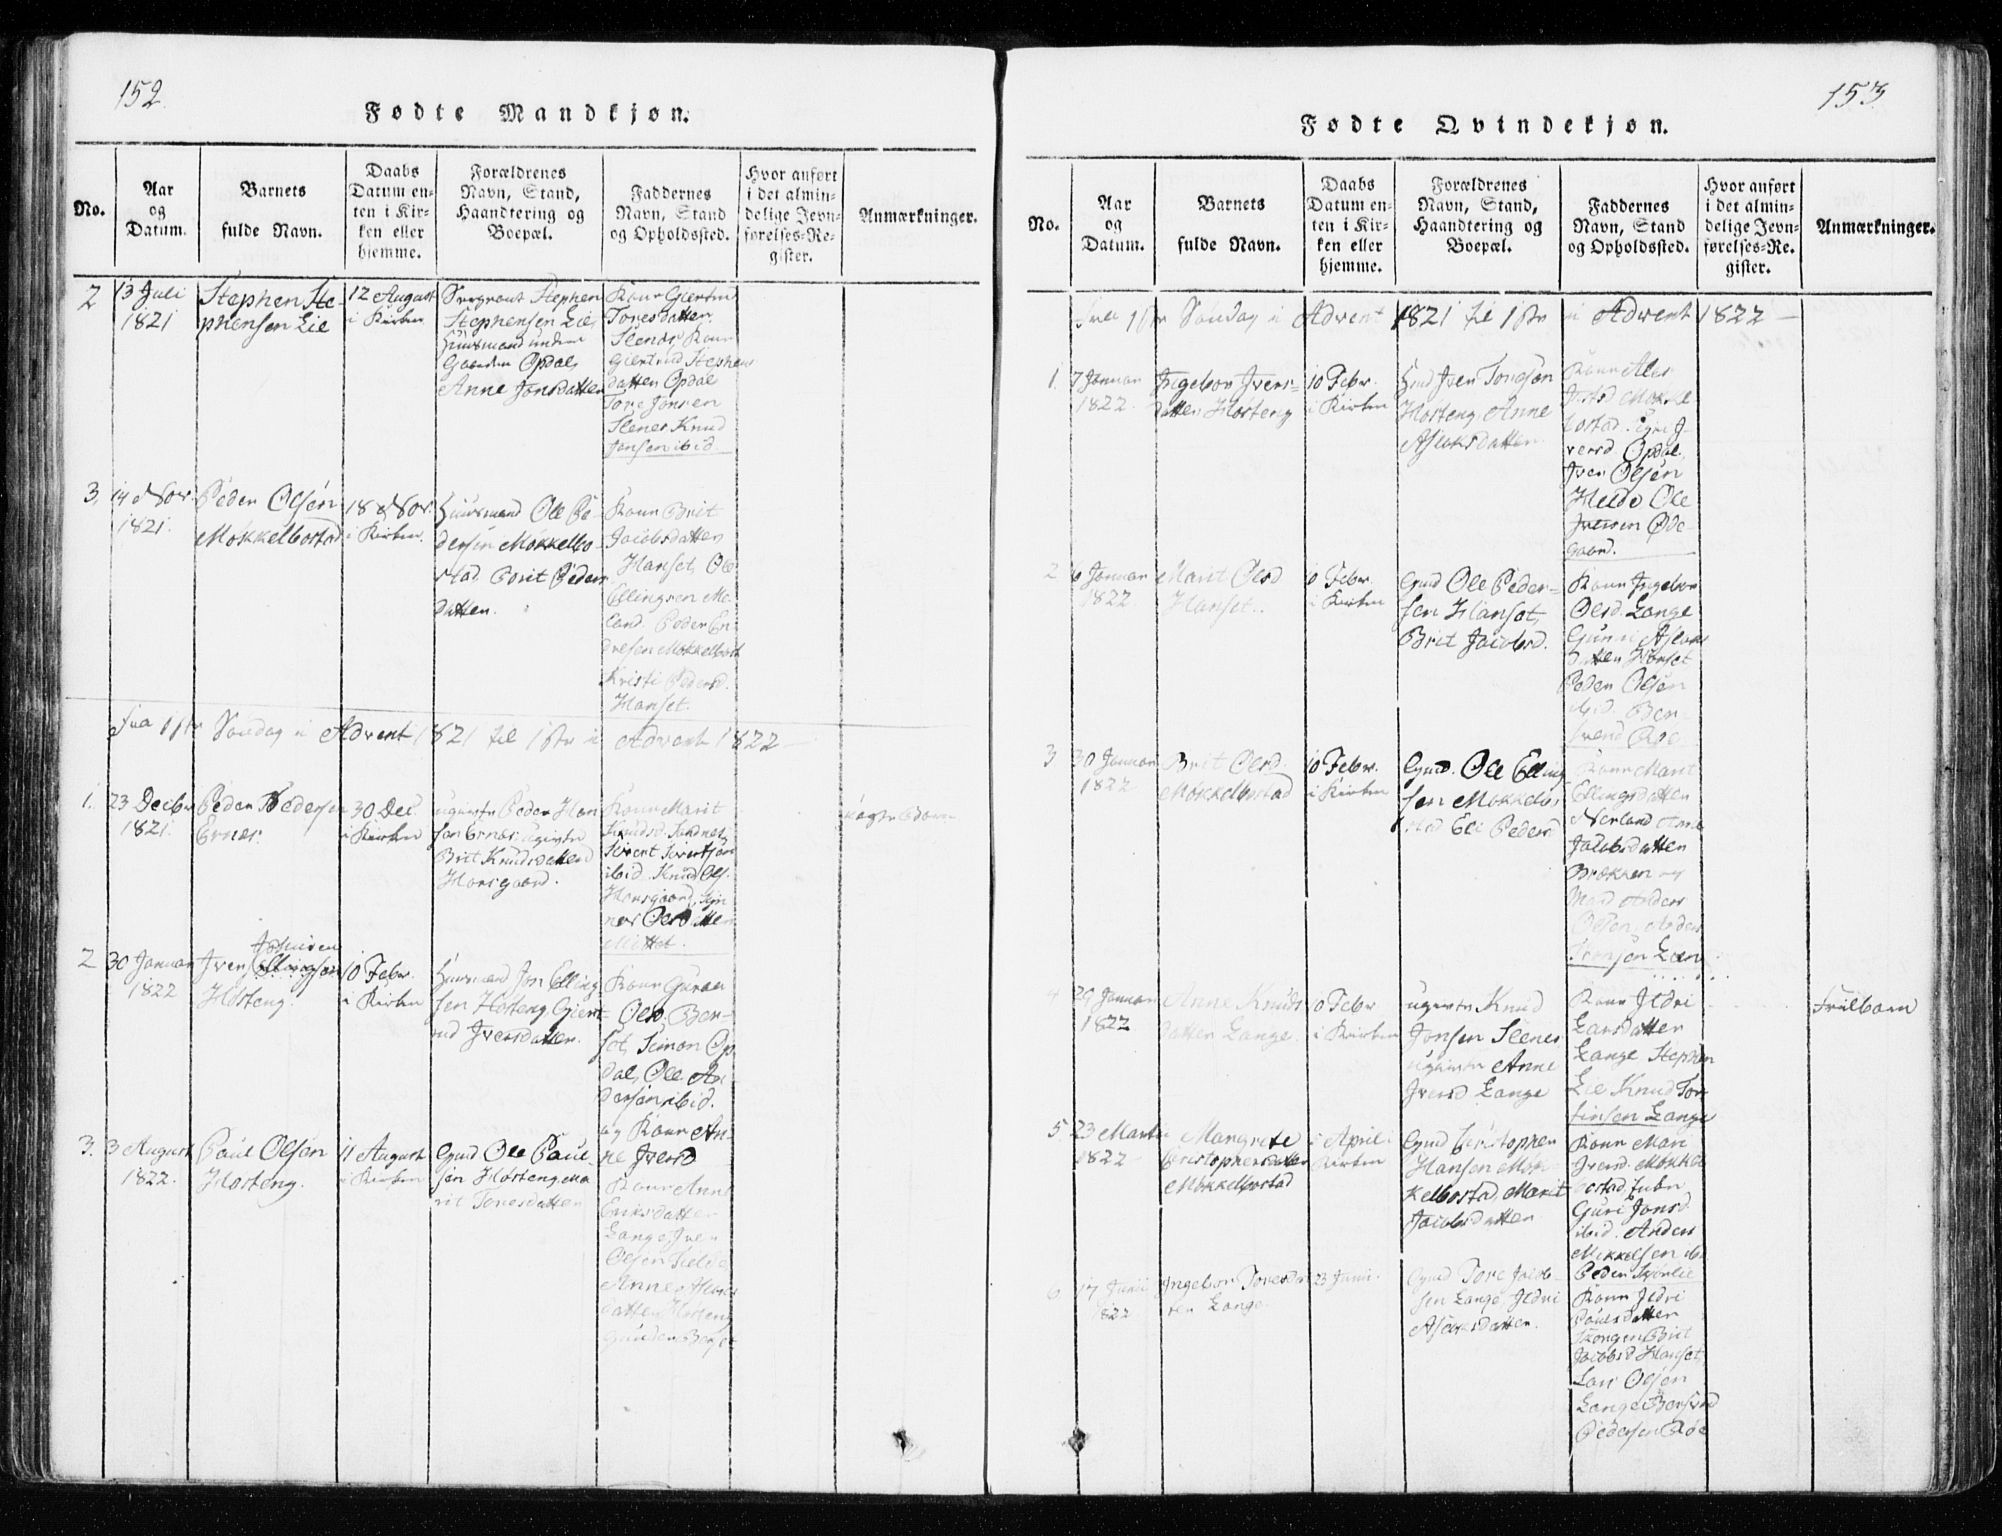 152.
Fødte Mandkjøn.
No.
Aar
og
Datum.
Barnets
fulde Navn.
Daabs
Datum en-
ten i Kir-
ken eller
hjemme.
Forældrenes
Navn, Stand,
Haandtering og
Boepæl.
Faddernes
Navn, Stand
og Opholdssted.
Hvor anført
i det almin-
delige Jevn-
førelses-Re-
gister.
Anmærkninger.
2
13 Juli
1821
Stephen Ste-
phensen Lie
12 August
i Kirken
Sergeant Stephen
Stephensen Lie,
Huusmand under
Gaarden Opdal,
Anne Jonsdatter
Kone Giertru
Toresdatter
Slenes, Kone
Giertrud Stephens
datter Opdal
Tore Jonsen
Slenes Knud
Jonsen ibid
3
14 Nov.
1821.
Peder Olsen
Mokkelbostad
18 Nov.
i Kirken.
Huusmand Ole Pe-
dersen Mokkelbo-
stad. Berit Peders
datter.
Kone Brit
Jacobsdatter
Hanset, Ole
Ellingsen Me-
land. Peder En-
dresen Mokkelbost
Kristi Pedersd.
Hanset.
Fra 1ste Søndag i Advent 1821 til 1ste i Advent 1822
1.
23 Decbr
1821.
Peder Pedersen
Ernes.
30 Dec
i Kirken
ugivte Peder Han
sen Ernes ugivte
Brit Knudsdatter
Horsgaard.
Kone Marit
Knudsd. Sandnes
Sivert Sivertsen
ibid. Knud Ols.
Horsgaard,
Olsdatter
Mittet.
uægte Barn
2
30 Januar
1822
Iver Ellingsen
Høsteng.
10 Febr.
i Kirken
Huusmand Jon Elling-
sen Høsteng, Giert-
rud Iversdatter.
Kone Guroe
Olsd. Ber-
set, Simon Op
dal, Ole An-
dersen ibid.
og Kone An-
ne Iversd
3.
3 August
1822.
Paul Olsen
Høsteng.
11 August
i Kirken
Gmd Ole Paul-
sen Høsteng, Ma-
rit Toresdatter
Kone Anne
Eriksdatter
Lange, Iver
Olsen Helde,
Anne
datter Høsteng
153.
Fødte Qvindekjøn.
No.
Aar
og
Datum.
Barnets
fulde Navn.
Daabs
Datum en-
ten i Kir-
ken eller
hjemme.
Forældrenes
Navn, Stand,
Haandtering og
Boepæl.
Faddernes
Navn, Stand
og Opholdssted.
Hvor anført
i det almin-
delige Jevn-
førelses-Re-
gister.
Anmærkninger.
Fra 1ste Søndag i Advent 1821 til 1ste i Advent 1822
1.
7 Januar
1822.
Ingebor Ivers-
datter Høsteng
10 Febr.
i Kirken
Hmd Iver Toresen
Høsteng, Anne
Aslaksdatter
Mokke
bostad. I-
versd Opdal.
Iver Olsen
Helde Ole
Iversen Øde-
gaard.
2
6 Januar
1822
Marit Olsd
Hanset.
10 Febr.
i Kirken
Gmd Ole Peder-
sen Hanset,
Brit Jacobsd.
Kone Ingebor
Olsd. Lange
Guri Aslaks
datter Hanset
Peder Olsen
ibid. Ber-
svend Røe
3
30 Januar
1822
Brit Olsd.
Mokkelbostad
10 Febr.
i Kirken
Gmd. Ole Elling
sen Mokkelbo
stad Eli Pedersd
Kone Marit
Ellingsdatter
Nerland Anne
Jacobsdatter
Brækken og
Mand Anders
Olsen, Anders
Iversen Lien
4
29 Januar
1822
Anne Knuds
datter Lange.
10 Febr
i Kirken
ugivte Knud
Jonsen Slenes
ugivte Anne
Iversd Lange
Kone Ildri
Larsdatter
Lange Stephen
Lie Knud Tor-
finsen Lange
Frilbarn
5.
23 Marti
1822
Margrete
Christophersdatter
Mokkelbostad
i April i
Kirken
Gmd Christopher
Hansen Mok-
kelbostad, Marit
Jacobsdatter
Kone Mari
Iversd. Mokkel
bostad,
Guri Jonsd
ibid. Anders
Mikkelsen ibi
Peder
6
17 Junii
1822
Ingebor Toresdat
ter Lange
23 Juni.
Gmd Tore Jacob-
sen Lange Ildri
Aslaksdatter.
Kone Ildri
Paulsdatter
Brit
Jacobsd Hanset,
Lars Olsen
Lange Bersvend
Pedersen Røe